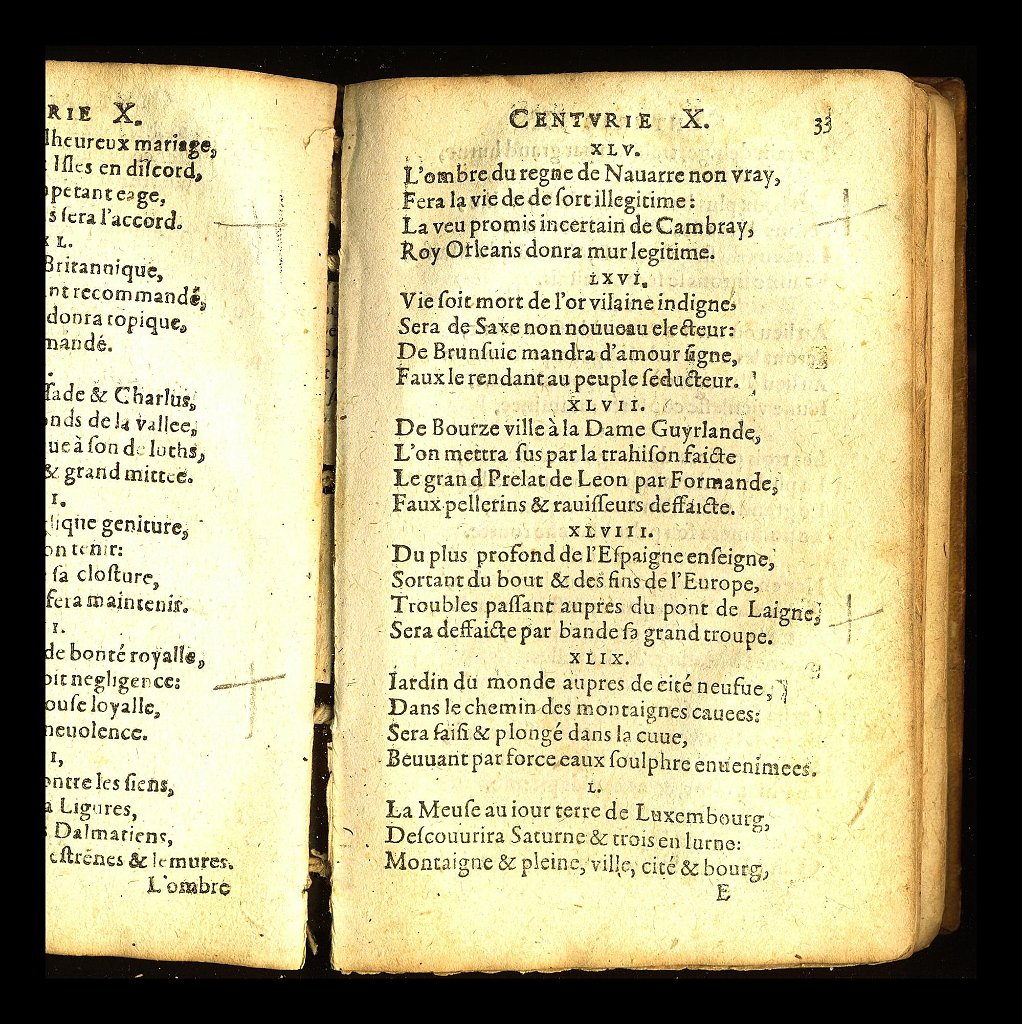 RIE X.
lheureux mariage,
Isles en discord,
petant eage,
s sera l'accord.
XL.
Britannique,
nt recommandé,
donra topique,
mandé.
sade & Charlus,
onds de la vallee,
ue à son de luths,
& grand mittee.
I.
lique geniture,
on tenir:
sa closture,
fera maintenir.
I.
de bonté royalle,
oit negligence:
ouse loyalle,
neuolence.
I,
ontre les siens,
a Ligures,
s Dalmatiens,
estrénes & lemures.
L'ombre
CENTVRIE X. 33
XLV.
L'ombre du regne de Nauarre non vray,
Fera la vie de de sort illegitime:
La veu promis incertain de Cambray,
Roy Orleans donra mur legitime.
LXVI.
Vie soit mort de l'or vilaine indigne,
Sera de Saxe non nouueau electeur:
De Brunsuic mandra d'amour signe,
Faux le rendant au peuple seducteur.
XLVII.
De Bourze ville à la Dame Guyrlande,
L'on mettra sus par la trahison faicte
Le grand Prelat de Leon par Formande,
Faux pellerins & rauisseurs deffaicte.
XLVIII.
Du plus profond de l'Espaigne enseigne,
Sortant du bout & des fins de l'Europe,
Troubles passant aupres du pont de Laigne,
Sera deffaicte par bande sa grand troupe.
XLIX.
Iardin du monde aupres de cité neufue,
Dans le chemin des montaignes cauees:
Sera saisi & plongé dans la cuue,
Beuuant par force eaux soulphre enuenimees.
L.
La Meuse au iour terre de Luxembourg,
Descouurira Saturne & trois en lurne:
Montaigne & pleine, ville, cité & bourg,
E